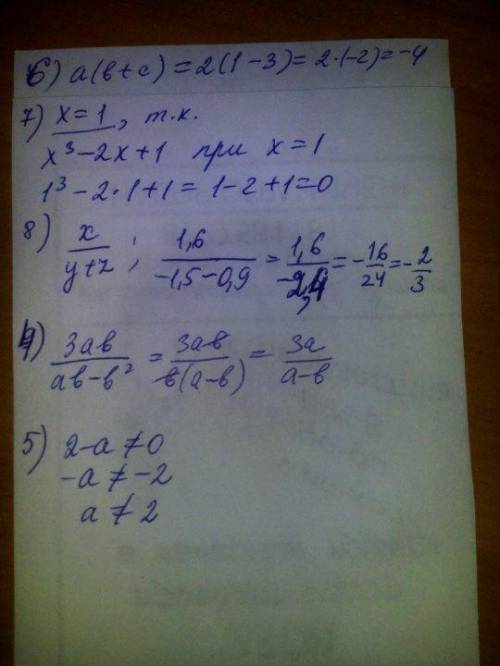 6) a(b+c) = 2(1-3) = 2·(-2) = -4
7) x=1, т.к.
x³-2x+1 при x=1
1³-2·1+1=1-2+1=0
8) x/(y+z); 1,6/(-1,5-0,9) = 1,6/(-2,4) = -16/24 = -2/3
4) 3ab/(ab-b²) = 3ab/(b(a-b)) = 3a/(a-b)
5) 2-a≠0
-a≠-2
a≠2